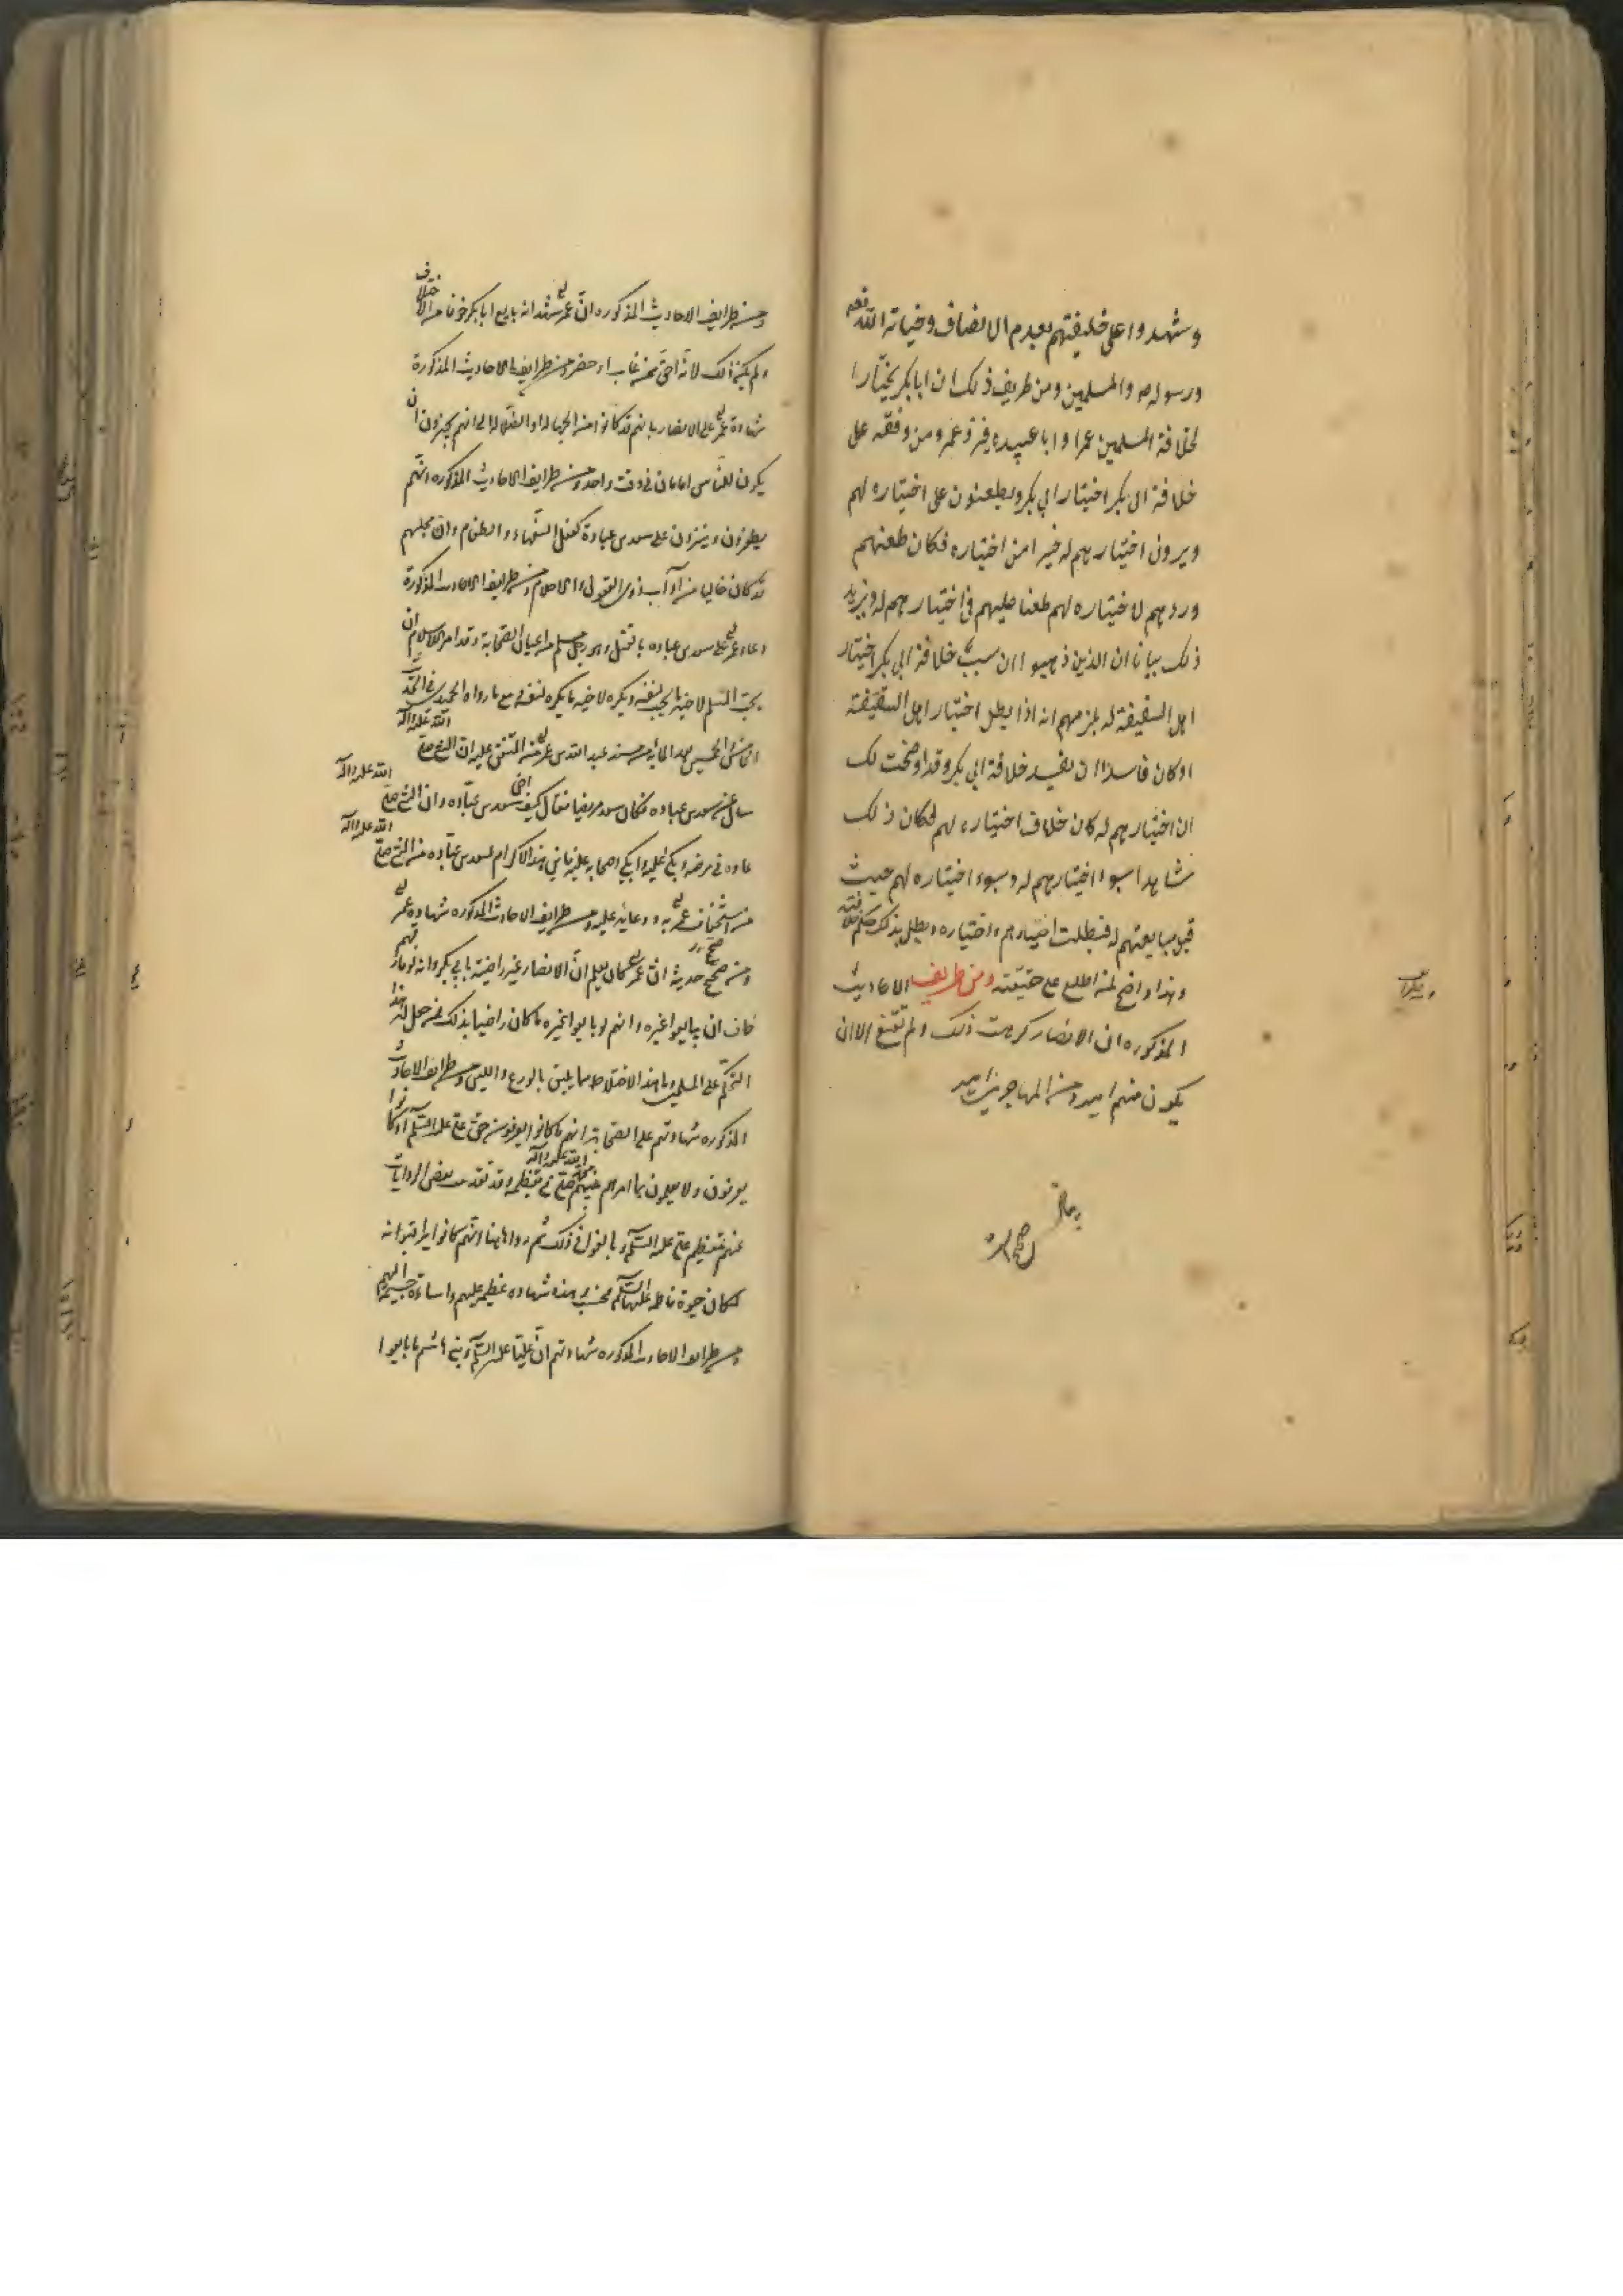 وشهدوا على خليفتهم بعدم الانصاف وخيانة الله فعه
ورسوله ص والمسلمين ومن طريف ذلك ان ابا بكر يختار
لخلافة المسلمين عمرا و ابا عبيده فرد عمر ومن وفقه على
خلافة ابى بكر اختيار ابي بكر ويطعنون على اختياره لهم
ويرون اختيارهم له خيرا من اختياره فكان طعنهم
وردهم لاختياره لهم طعنا عليهم فى اختيارهم له ويزيد
ذلك بيانا ان الذين ذهبوا ان سبب خلافة ابي بكر اختيار
اهل السقيفة له يلزمهم انه اذا بطل اختيار اهل السقيفة
او كان فاسدا ان يفسد خلافة ابي بكر وقد اوضحت لك
ان اختيارهم له كان خلاف اختياره لهم فكان ذلك
شاهدا بسوء اختيارهم له وسوء اختياره لهم حيث
قبل مبايعتهم له فبطلت اختيارهم واختياره وبطل بذلك حكم خلافته
وهذا واضح لمن اطلع على حقيقته ومن طريف الاحاديث
المذكوره ان الانصار كرهت ذلك ولم تقنع الا ان
يكون منهم امير ومن المهاجرين امير
ومن طرايف الاحاديث المذكوره ان عمر شهد انه بايع ابا بكر خوفا من الاختلاف
ولم يكن ذلك لانه احق ممن غاب او حضر ومن طرايف الاحاديث المذكورة
شهادة عمر على الانصار بانهم قد كانوا من الجهالة والضلالة الى انهم يجيزون ان
يكون للناس امامان فى وقت واحد ومن طرايف الاحاديث المذكوره انهم
يطفرون وينزون على سعد بن عبادة كفعل السفهاء والطغام وان مجلسهم
قد كان خاليا من آداب ذوى العقول والاحلام ومن طرايف الاحاديث المذكورة
دعاء عمر على سعد بن عباده بالقتل وهو رجل مسلم من اعيان الصحابة وقد امر الاسلام ان
يحب المسلم لاخيه ما يحب لنفسه ويكره لاخيه ما يكره لنفسه مع ما رواه الحميدى فى الحديث
الخامس والخمسين بعد المائة من مسند عبد الله بن عمر من المتفق عليه ان النبي صلى الله عليه واله
سال عن سعد بن عباده فكان سعد مريضا فقال كيف اخى سعد بن عباده وان النبي صلى الله عليه واله
عاده فى مرضه وبكى عليه وابكى اصحابه عليه فاين هذا الاكرام لسعد بن عباده من النبي صلى الله عليه واله
من استخفاف عمر به ودعائه عليه ومن طرايف الاحاديث المذكوره شهادة عمر
ومن صحيح حديثه ان عمر كان يعلم ان الانصار غير راضية بابى بكر وانه لو فارقهم
خاف ان يبايعوا غيره وانهم لو بايعوا غيره ما كان راضيا بذلك فمن جعل له هذا
التحكم على المسلمين وما هذا الاختلاط مما يليق بالورع والدين ومن طرايف الاحاديث
المذكوره شهادتهم على الصحابة انهم ما كانوا يعرفون حق على عليه السلم او كانوا
يعرفون ولا يعملون بما امرهم نبيهم محمد صلى الله عليه واله فى تعظيمه وقد تقدمت بعض الروايات
عنهم بتعظيم على عليه السلم وبالقول فى ذلك ثم رووا هاهنا انهم كانوا يراقبوا انه
لمكان حيوة فاطمه عليها السلم فحسب وهذه شهادة عظيمة عليهم واساءة جسيمة اليهم
ومن طرايف الاحاديث المذكوره شهادتهم ان عليا عليه السلم وبني هاشم ما بايعوا